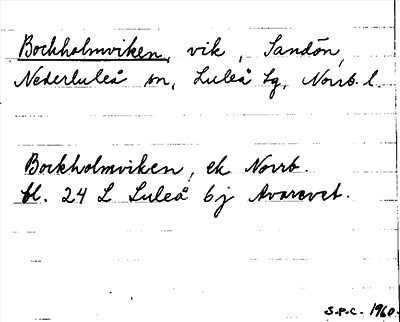 Bockholmviken, vik, Sandön,
Nederluleå sn, Luleå tg, Norrb. l.
Bockholmviken, ek Norrb.
bl. 24 L Luleå 6j Avarevet.
S.P.C. 1960.